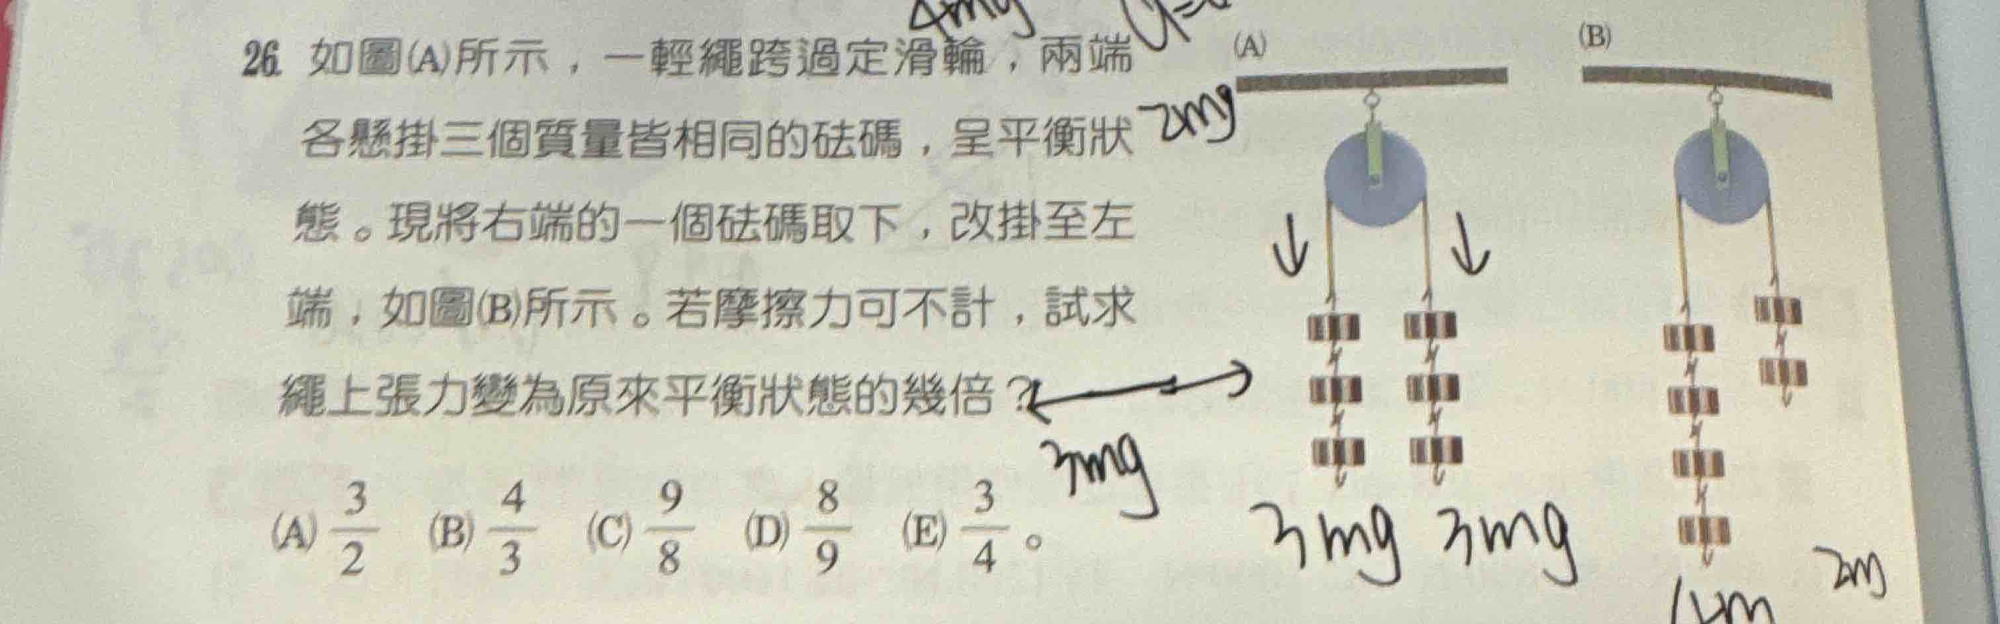 4mg
26. 如圖(A)所示，一輕繩跨過定滑輪，兩端
各懸掛三個質量皆相同的砝碼，呈平衡狀
態。現將右端的一個砝碼取下，改掛至左
端，如圖(B)所示。若摩擦力可不計，試求
繩上張力變為原來平衡狀態的幾倍？
(A) 3/2 (B) 4/3 (C) 9/8 (D) 8/9 (E) 3/4 。
3mg
(A)
(B)
2mg
3mg 3mg
4m
2m